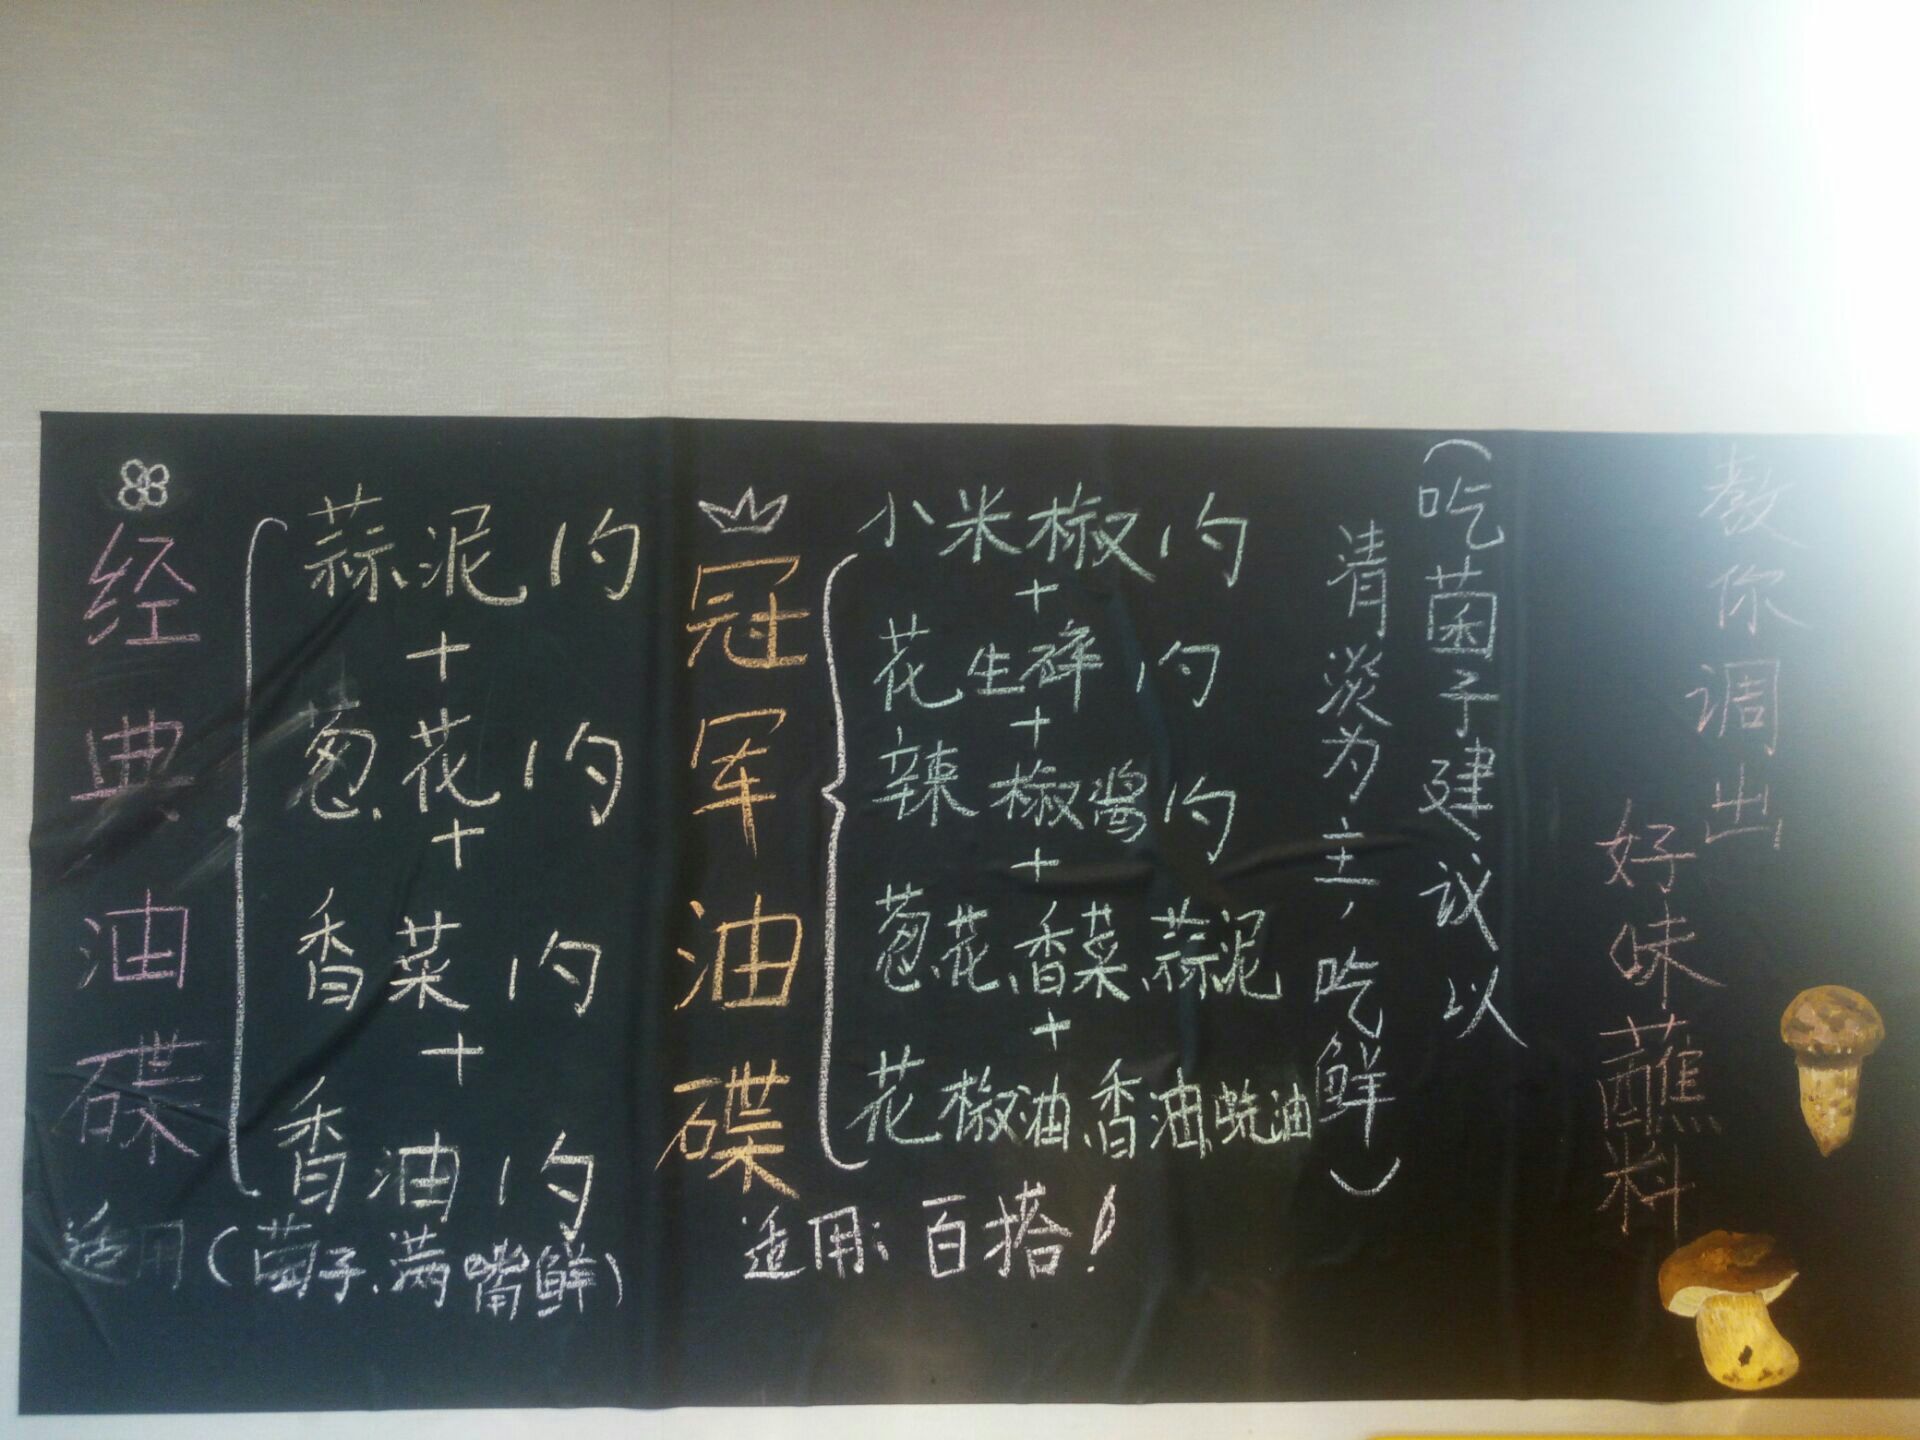 教你调出
好味蘸料
（吃菌子建议以
清淡为主，吃鲜）
冠军油碟
小米椒1勺
+
花生碎1勺
+
辣椒酱1勺
+
葱花、香菜、蒜泥
+
花椒油、香油、蚝油
适用：百搭！
经典油碟
蒜泥1勺
+
葱花1勺
+
香菜1勺
+
香油1勺
适用（菌子、满嘴鲜）